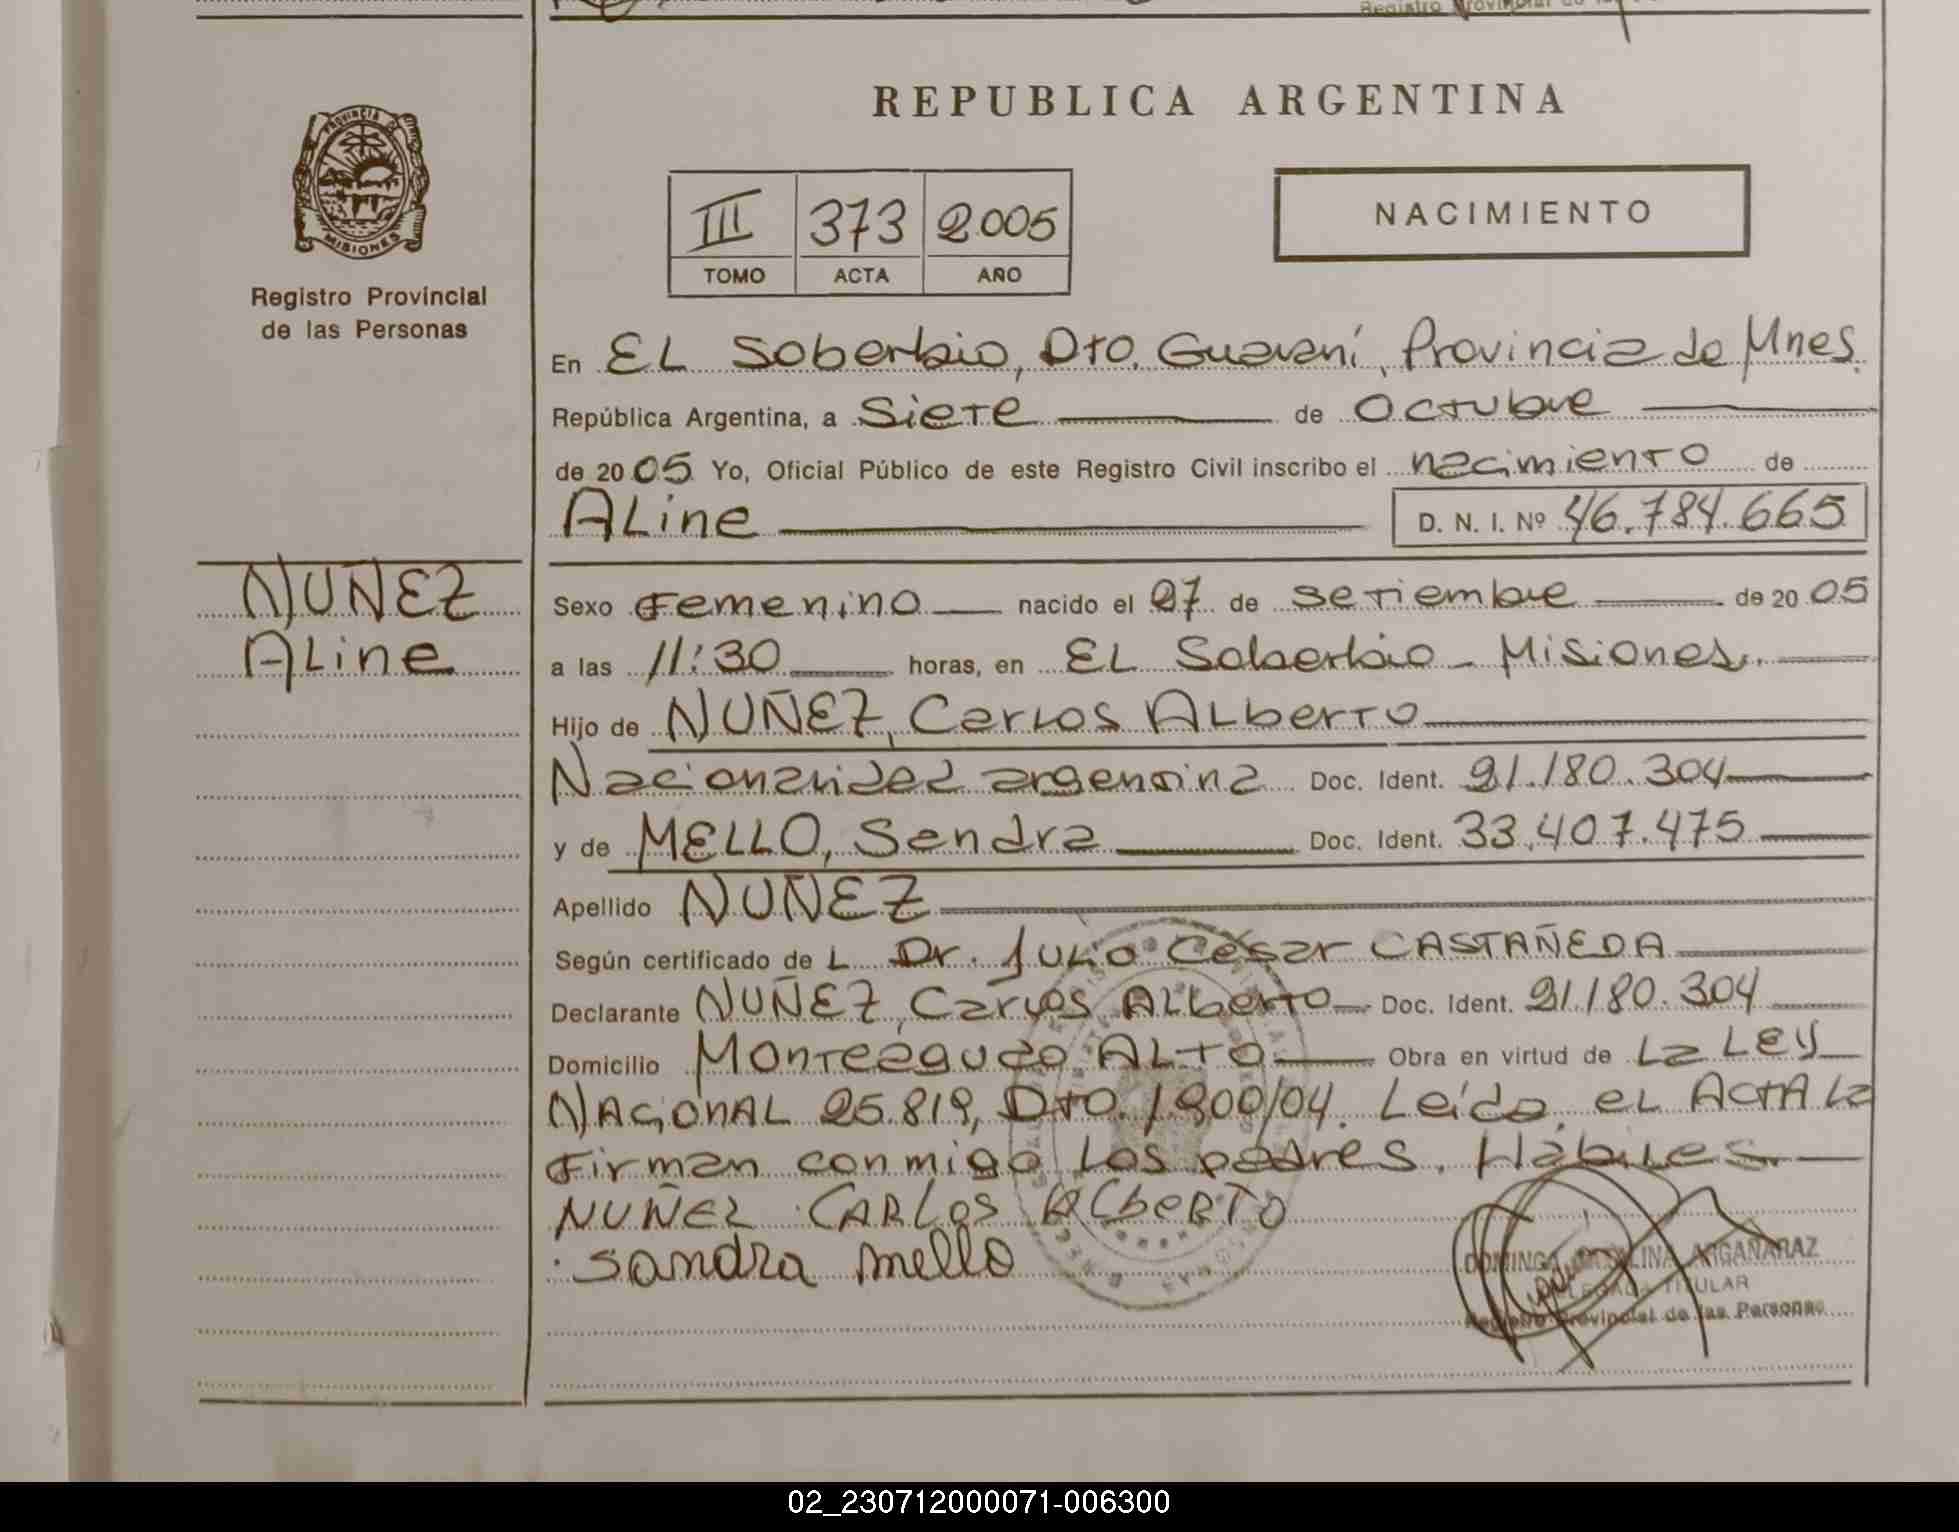 REPUBLICA ARGENTINA
PROVINCIA DE
MISIONES
Registro Provincial
de las Personas
III 373 2005
TOMO ACTA AÑO
NACIMIENTO
En EL Soberbio, Dto. Guaraní, Provincia de Mnes.
República Argentina, a Siete de Octubre
de 2005 Yo, Oficial Público de este Registro Civil inscribo el nacimiento de
ALine D. N. I. Nº 46.784.665
NUÑEZ
ALine
Sexo Femenino nacido el 27 de setiembre de 2005
a las 11:30 horas, en EL Soberbio - Misiones.
Hijo de NUÑEZ, Carlos ALberto
Nacionalidad argentina Doc. Ident. 21.180.304
y de MELLO, Sandra Doc. Ident. 33.407.475
Apellido NUÑEZ
Según certificado de L Dr. Julio César CASTAÑEDA
Declarante NUÑEZ, Carlos ALberto Doc. Ident. 21.180.304
Domicilio Monteagudo ALTO Obra en virtud de La LEY
NACIONAL 25.819, DTO. 1900/04. Leída el ACTA La
Firman conmigo Los padres. Hábiles.
NUÑEZ CARLOS ALBERTO
Sandra mello
ARGAÑARAZ
TITULAR
Registro Provincial de las Personas
02_230712000071-006300